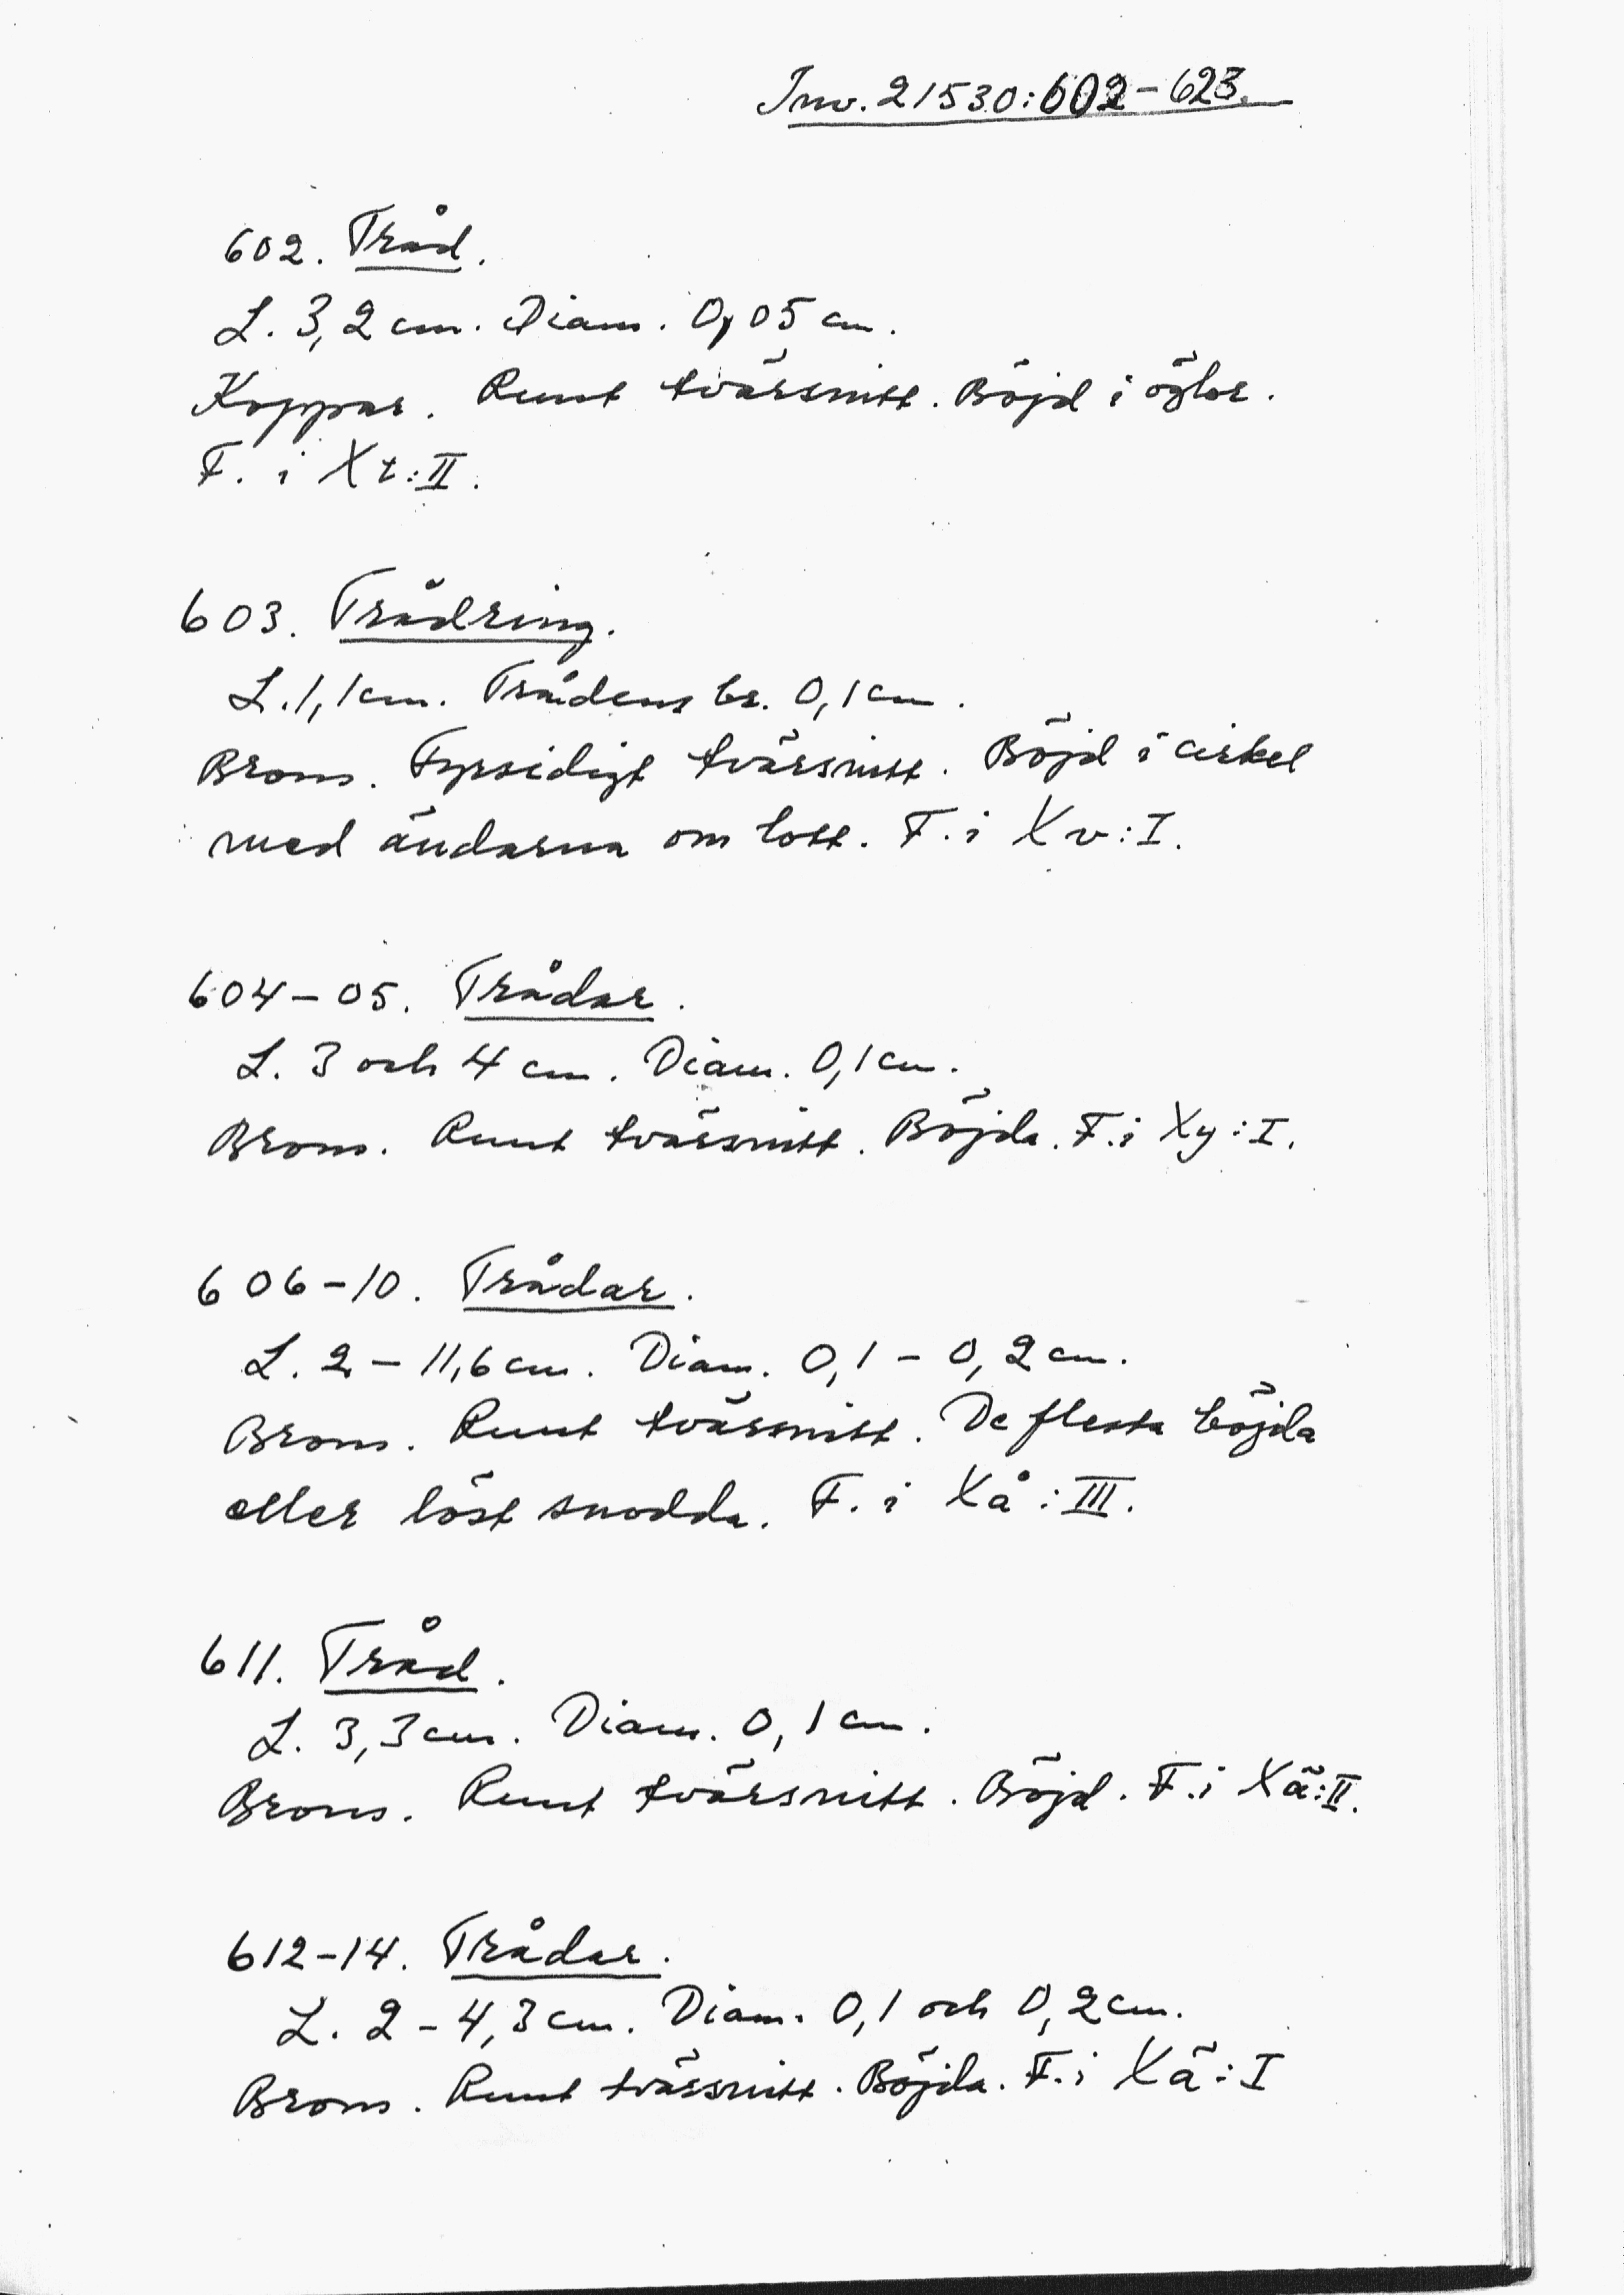 Inv. 21530:602-623.
602. Tråd.
L. 3,2 cm. Diam. 0,05 cm.
Koppar. Runt tvärsnitt. Böjd i öglor.
F. i Xt:II.
603. Trådring.
L. 1,1 cm. Trådens br. 0,1 cm.
Brons. Fyrsidigt tvärsnitt. Böjd i cirkel
med ändarna om lott. F. i Xv:I.
604-05. Trådar.
L. 3 och 4 cm. Diam. 0,1 cm.
Brons. Runt tvärsnitt. Böjda. F. i Xy:I.
606-10. Trådar.
L. 2 - 11,6 cm. Diam. 0,1 - 0,2 cm.
Brons. Runt tvärsnitt. De flesta böjda
eller löst snodda. F. i Xå:III.
611. Tråd.
L. 3,3 cm. Diam. 0,1 cm.
Brons. Runt tvärsnitt. Böjd. F. i Xä:II.
612-14. Trådar.
L. 2 - 4,3 cm. Diam. 0,1 och 0,2 cm.
Brons. Runt tvärsnitt. Böjda. F. i Xä:I